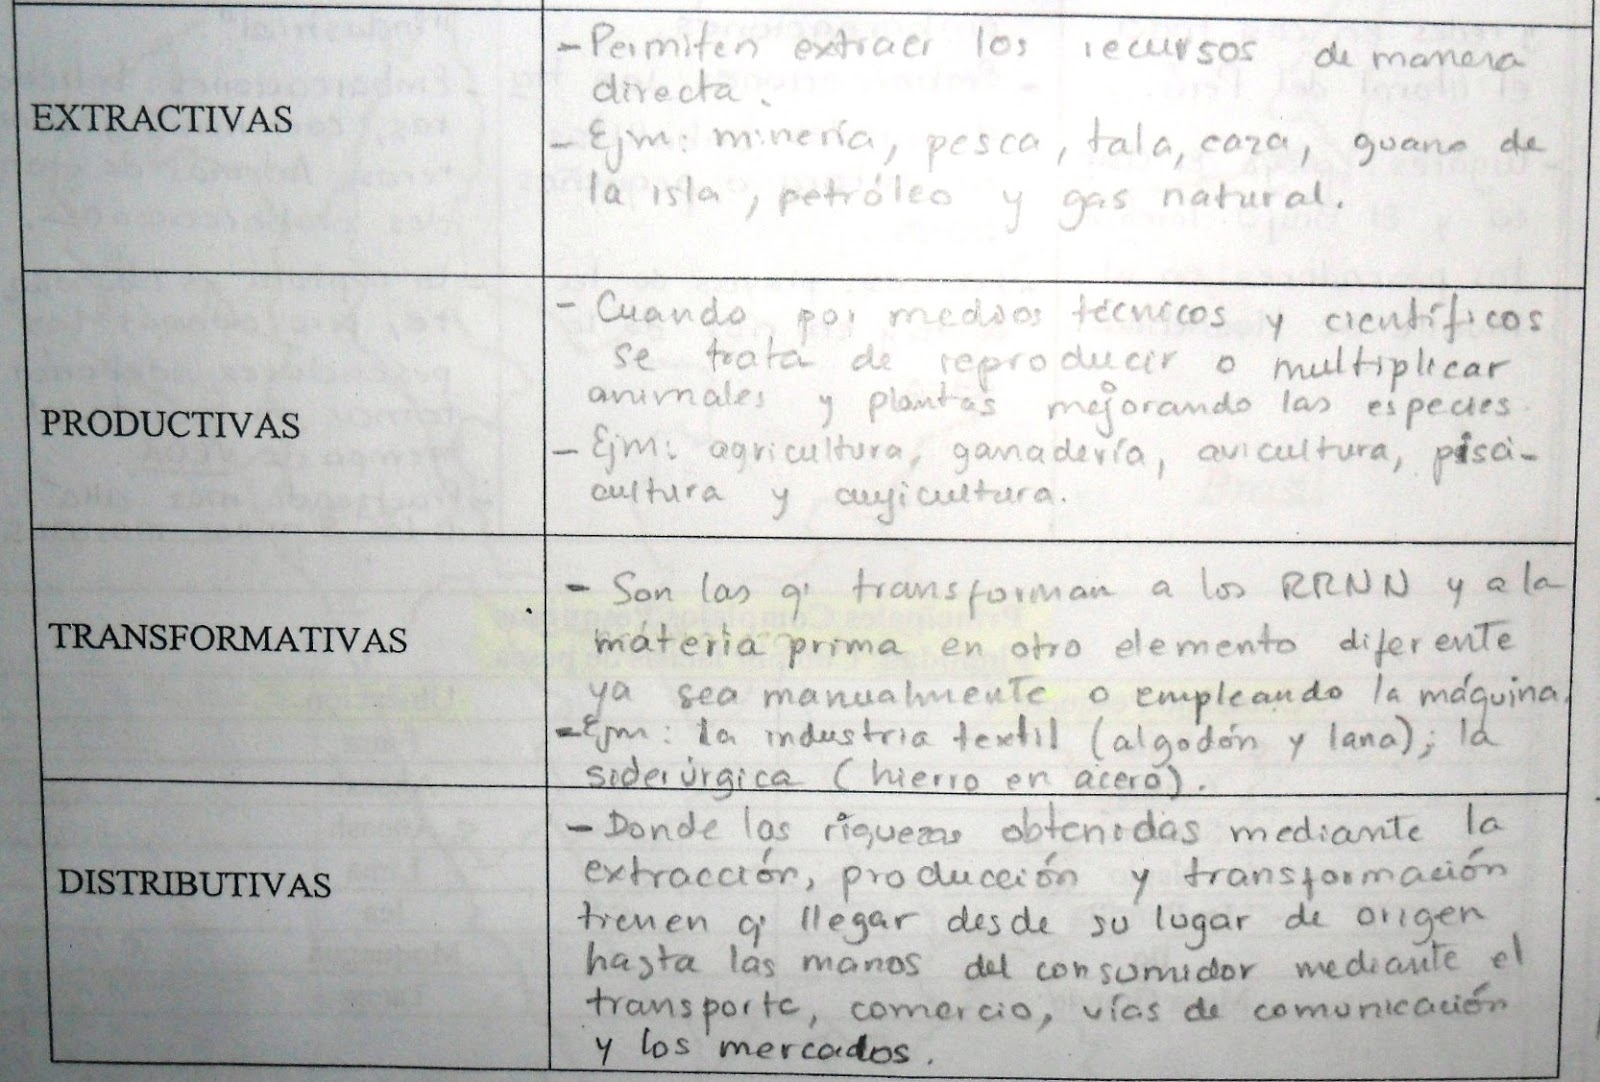 EXTRACTIVAS
- Permiten extraer los recursos de manera
directa.
- Ejm: minería, pesca, tala, caza, guano de
la isla, petróleo y gas natural.
PRODUCTIVAS
- Cuando por medios técnicos y científicos
se trata de reproducir o multiplicar
animales y plantas mejorando las especies.
- Ejm: agricultura, ganadería, avicultura, pisci-
cultura y cuyicultura.
TRANSFORMATIVAS
- Son las q' transforman a los RRNN y a la
materia prima en otro elemento diferente
ya sea manualmente o empleando la máquina.
- Ejm: la industria textil (algodón y lana); la
siderúrgica (hierro en acero).
DISTRIBUTIVAS
- Donde las riquezas obtenidas mediante la
extracción, producción y transformación
tienen q' llegar desde su lugar de origen
hasta las manos del consumidor mediante el
transporte, comercio, vías de comunicación
y los mercados.